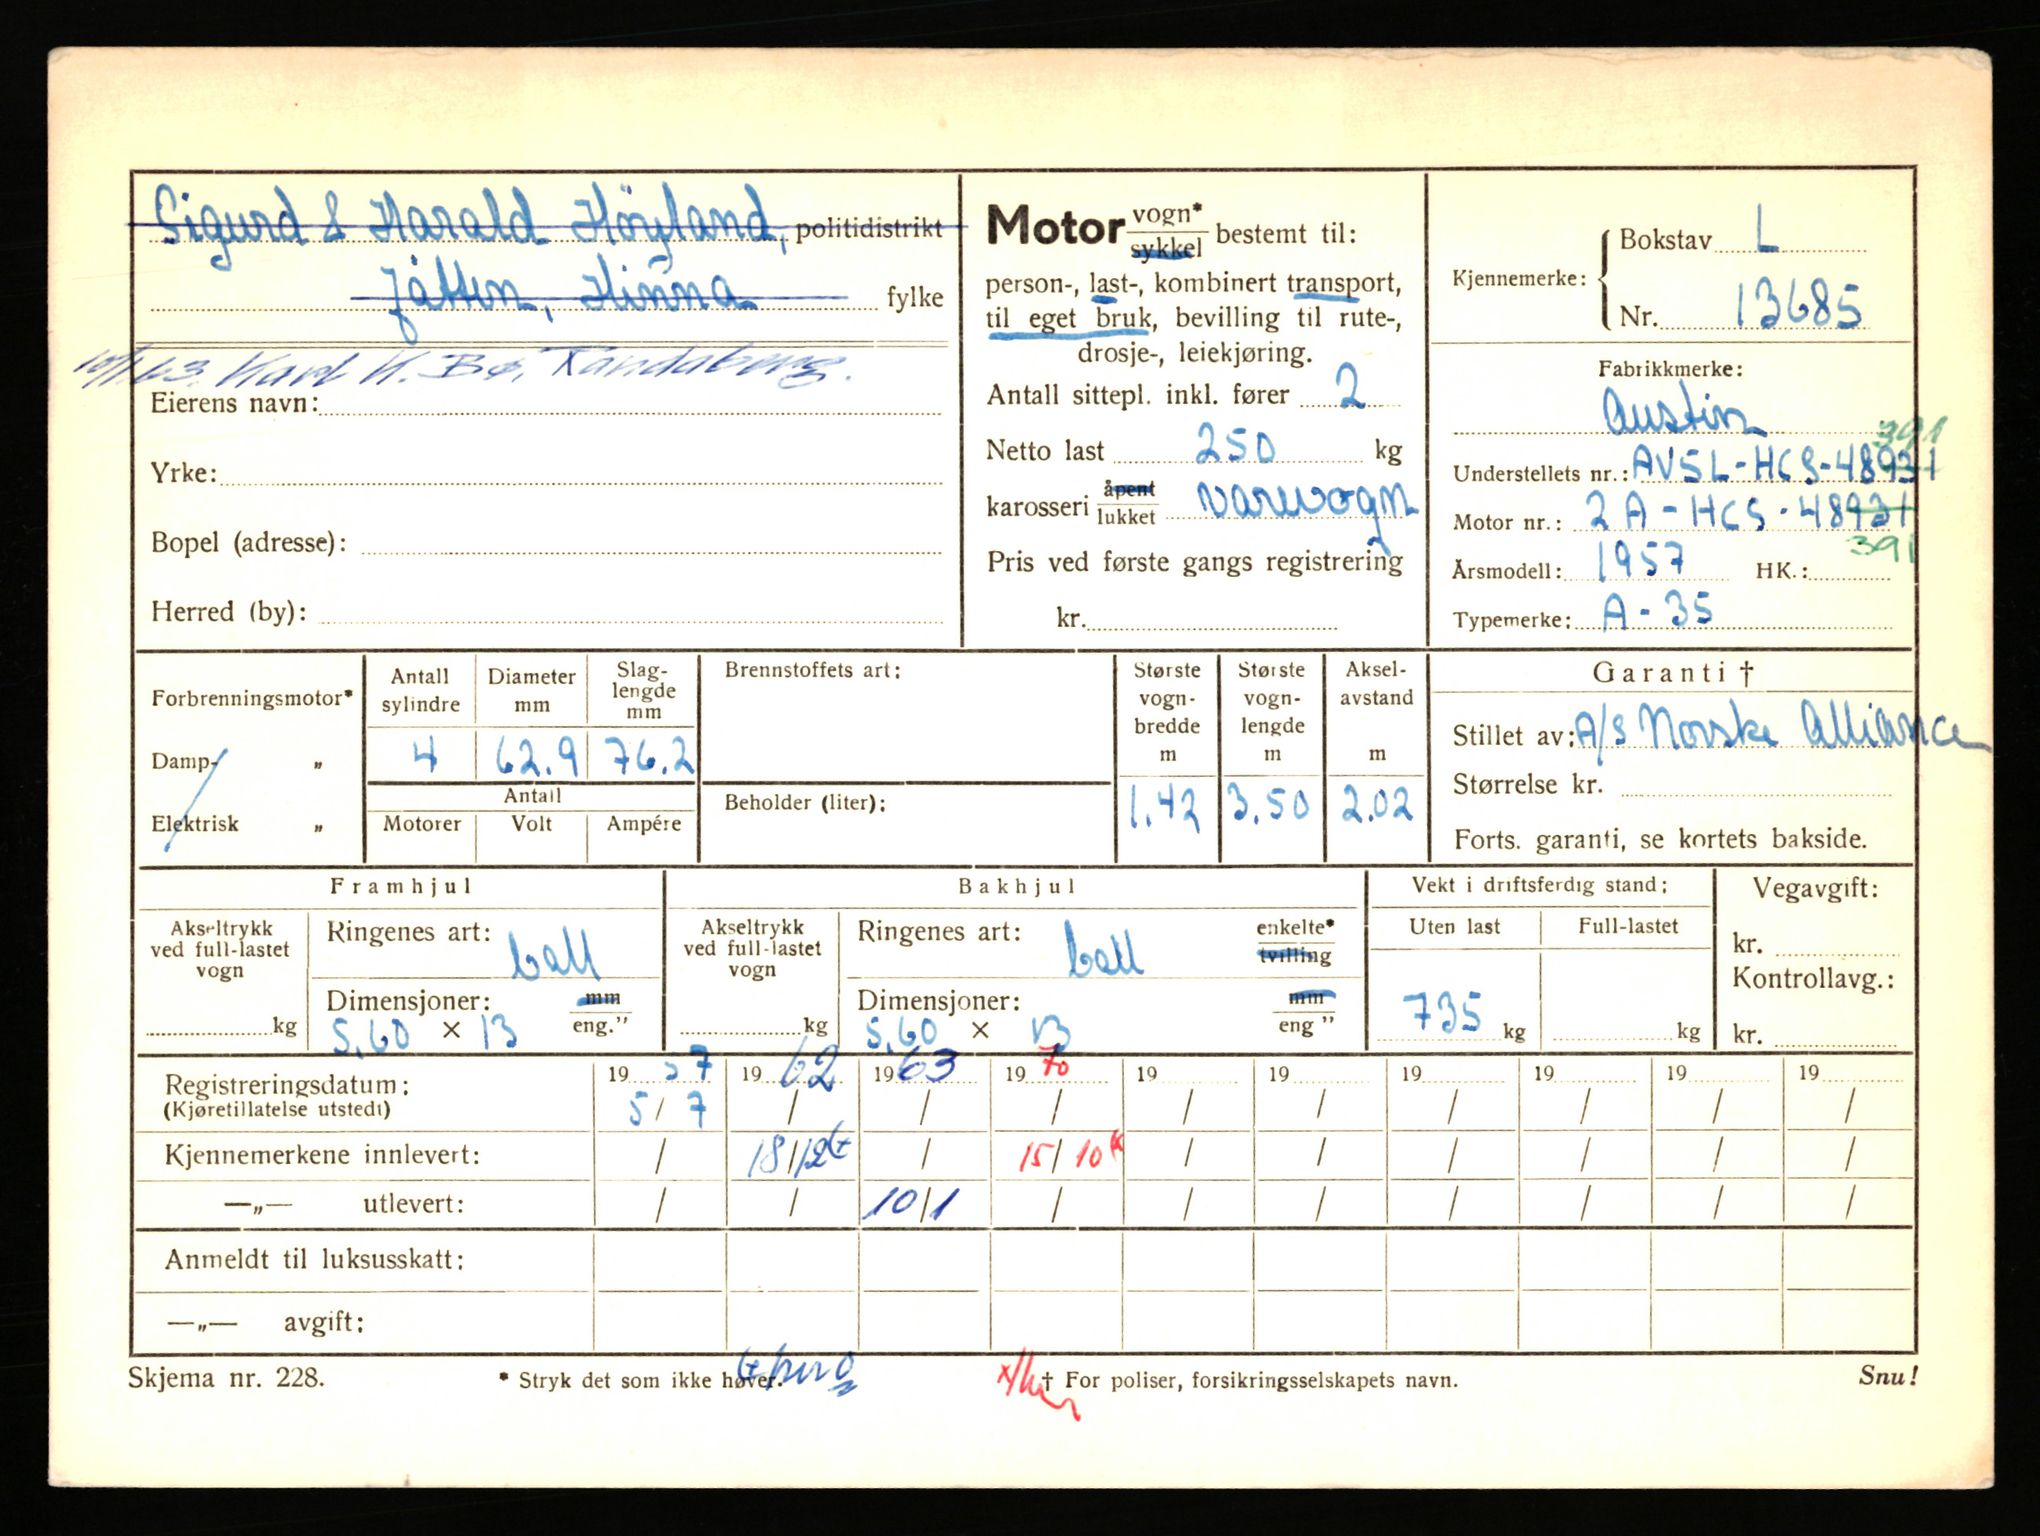 Sigurd & Harald Höyland, politidistrikt
Jåtten, Hinna fylke
10/1.63. Karl K. Bø, Randaberg.
Eierens navn:
Yrke:
Bopel (adresse):
Herred (by):
Motor vogn* sykkel bestemt til:
person-, last-, kombinert transport,
til eget bruk, bevilling til rute-,
drosje-, leiekjøring.
Antall sittepl. inkl. fører 2
Netto last 250 kg
karosseri åpent lukket varevogn
Pris ved første gangs registrering
kr.
Kjennemerke: Bokstav L
Nr. 13685
Fabrikkmerke:
Austin
391
Understellets nr.: AVSL-HCS-48931
Motor nr.: 2A-HCS-48931
391
Årsmodell: 1957 HK.:
Typemerke: A-35
Forbrenningsmotor*
Damp- „
Elektrisk „
Antall sylindre Diameter mm Slag-lengde mm
4 62.9 76.2
Antall
Motorer Volt Ampére
Brennstoffets art:
Beholder (liter):
Største vogn-bredde m Største vogn-lengde m Aksel-avstand m
1.42 3.50 2.02
Garanti †
Stillet av: A/S Norske Alliance
Størrelse kr.
Forts. garanti, se kortets bakside.
Framhjul
Akseltrykk ved full-lastet vogn
kg
Ringenes art: ball
Dimensjoner: mm
5.60 × 13 eng."
Bakhjul
Akseltrykk ved full-lastet vogn
kg
Ringenes art: ball enkelte* tvilling
Dimensjoner: mm
5.60 × 13 eng "
Vekt i driftsferdig stand:
Uten last Full-lastet
735 kg kg
Vegavgift:
kr.
Kontrollavg.:
kr.
Registreringsdatum: 19 57 19 62 19 63 19 70 19 19 19 19 19 19
(Kjøretillatelse utstedt) 5/7 / / / / / / / / /
Kjennemerkene innlevert: / 18/12 / 15/10 / / / / / /
—„— utlevert: / / 10/1 / / / / / / /
Anmeldt til luksusskatt:
—„— avgift:
Skjema nr. 228. * Stryk det som ikke høver. † For poliser, forsikringsselskapets navn. Snu!